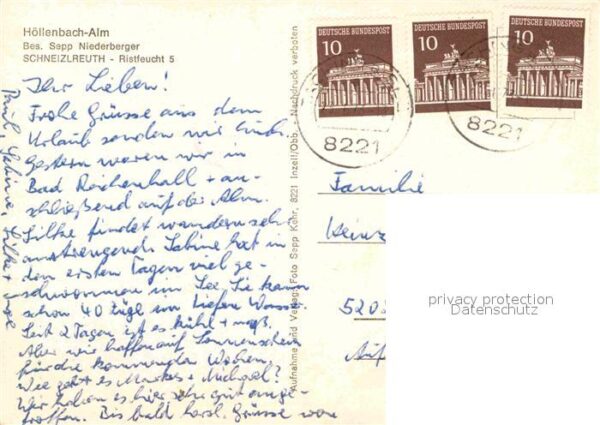 Höllenbach-Alm
Bes. Sepp Niederberger
SCHNEIZLREUTH - Ristfeucht 5
Ihr Lieben!
Frohe Grüsse aus dem
Urlaub senden wir Euch.
Gestern waren wir in
Bad Reichenhall + an-
schließend auf der Alm.
Silke findet wandern sehr
anstrengend. Sabine hat in
den ersten Tagen viel ge-
schwommen im See. Sie kann
schon 40 Züge im tiefen Wasser.
Seit 2 Tagen ist es kühl + naß.
Aber wir hoffen auf Sonnenschein
für die kommenden Wochen.
Wie geht es Markus + Michael?
Wir haben es hier sehr gut ange-
troffen. Bis bald herzl. Grüsse von
Sabine, Silke +
Aufnahme und Verlag: Foto Sepp Kehr, 8221 Inzell/Obb. Nachdruck verboten
DEUTSCHE BUNDESPOST
10
DEUTSCHE BUNDESPOST
10
DEUTSCHE BUNDESPOST
10
8221
8221
Familie
Heinz
520
privacy protection
Datenschutz